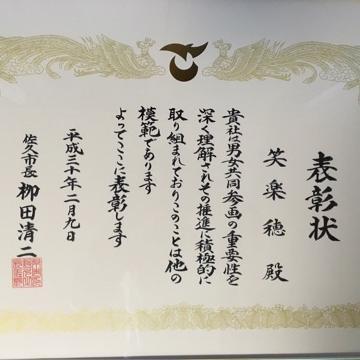 表彰状
笑楽穂 殿
貴社は男女共同参画の重要性を
深く理解されその推進に積極的に
取り組まれておりこのことは他の
模範であります
よってここに表彰します
平成三十年二月九日
佐久市長 栁田清二